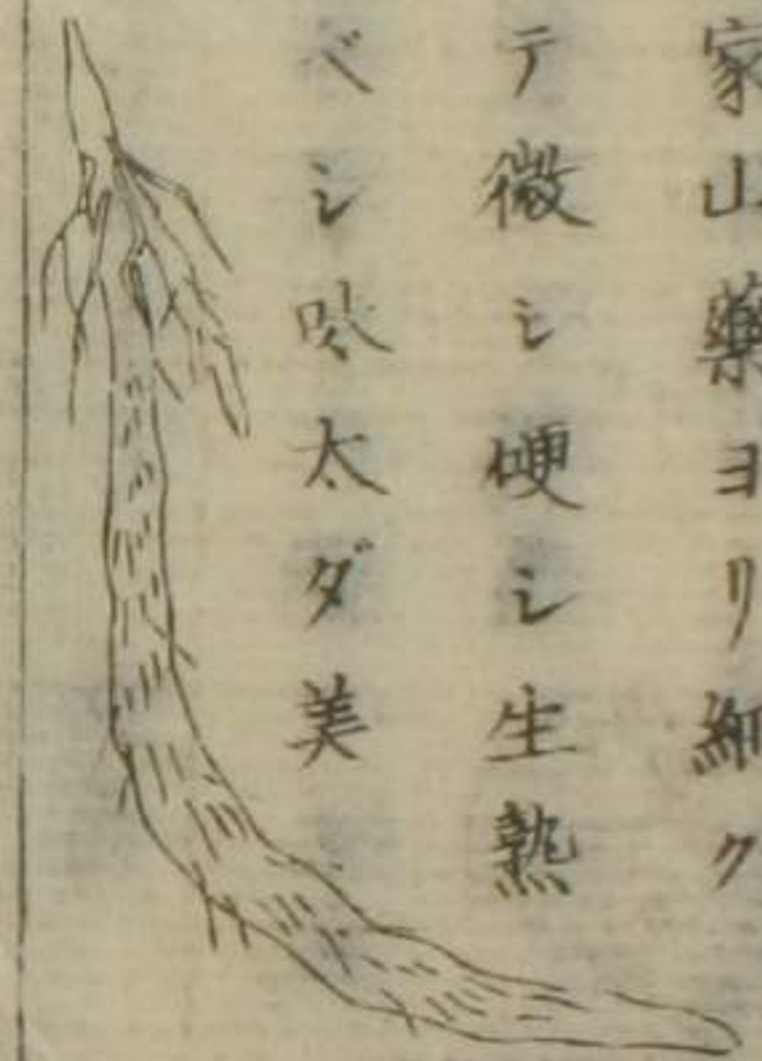 家山藥ヨリ細ク
テ微シ硬シ生熟
ベシ味太ダ美